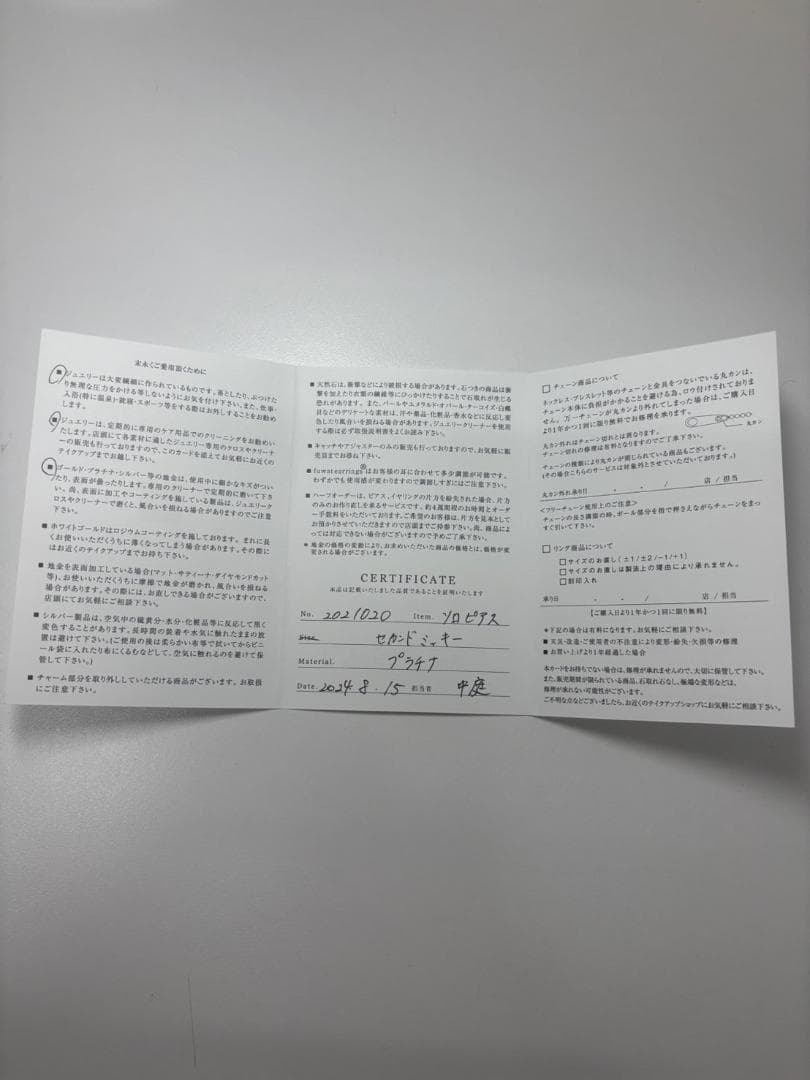 末永くご愛用頂くために
■ ジュエリーは大変繊細に作られているものです。落としたり、ぶつけた
り無理な圧力をかける等しないようにお気を付け下さい。また、炊事・
入浴(特に温泉)・就寝・スポーツ等をする際はお外しすることをお勧め
します。
■ ジュエリーは、定期的に専用のケア用品でのクリーニングをお勧めい
たします。店頭にて各素材に適したジュエリー専用のクロスやクリーナ
ーの販売も行っておりますので、このカードを添えてお気軽にお近くの
テイクアップまでお越し下さい。
■ ゴールド・プラチナ・シルバー等の地金は、使用中に細かなキズがつい
たり、表面が曇ったりします。専用のクリーナーで定期的に磨いて下さ
い。尚、表面に加工やコーティングを施している製品は、ジュエリーク
ロスやクリーナーで磨くと、風合いを損ねる場合がありますのでご注意
下さい。
■ ホワイトゴールドはロジウムコーティングを施しております。まれに長
くお使いいただくうちに薄くなってしまう場合があります。その際に
はお近くのテイクアップまでお持ち下さい。
■ 地金を表面加工している場合(マット・サティーナ・ダイヤモンドカット
等)、お使いいただくうちに摩擦で地金が磨かれ、風合いを損ねる
場合があります。その際には、お直しできる場合がございますので、
店頭にてお気軽にご相談下さい。
■ シルバー製品は、空気中の硫黄分・水分・化粧品等に反応して黒く
変色することがあります。長時間の装着や水気に触れたままの放
置は避けて下さい。(ご使用の後は柔らかい布等で拭いてからビニ
ール袋に入れたり布にくるむなどして、空気に触れるのを避けて保
管して下さい。)
■ チャーム部分を取り外ししていただける商品がございます。お取扱
にご注意下さい。
■ 天然石は、衝撃などにより破損する場合があります。石つきの商品は衝
撃を加えたり衣類の繊維等にひっかけたりすることで石取れが生じる
恐れがあります。また、パールやエメラルド・オパール・ターコイズ・白蝶
貝などのデリケートな素材は、汗や薬品・化粧品・香水などに反応し変
色したり風合いを損ねる場合があります。ジュエリークリーナーを使用
する際は必ず取扱説明書をよくお読み下さい。
■ キャッチやアジャスターのみの販売も行っておりますので、お気軽に販
売員までお尋ね下さい。
■ fuwaearrings®はお客様の耳に合わせて多少調節が可能です。
わずかでも使用感が変わりますので調節しすぎにはご注意下さい。
■ ハーフオーダーは、ピアス、イヤリングの片方を紛失された場合、片方
のみのお作り直しを承るサービスです。約4週間程のお時間とオーダ
ー手数料をいただいております。ご希望のお客様は、片方を見本として
お預かりさせていただきますので店頭までご持参下さい。尚、商品によ
っては対応できない場合がございますので予めご了承下さい。
* 地金の価格の変動により、お求めいただいた商品の価格とは、価格が変
更される場合がございます。
CERTIFICATE
本品は記載いたしました品質であることを証明いたします
No. 2021020 Item. ソロピアス
セカンドミッキー
Material. プラチナ
Date. 2024.8.15 担当者 中庭
□ チェーン商品について
ネックレス・ブレスレット等のチェーンと金具をつないでいる丸カンは、
チェーン本体に負担がかかることを避ける為、ロウ付けされておりま
せん。万一チェーンが丸カンより外れてしまった場合は、ご購入日
より1年かつ1回に限り無料でお修理を承ります。
丸カン
丸カン外れはチェーン切れとは異なります。
チェーン切れの修理は有料となりますのでご了承下さい。
チェーンの種類により丸カンが閉じられている商品もございます。
(その場合こちらのサービスは対象外とさせていただいております。)
丸カン外れ承り日 ・ ・ / 店 / 担当
<フリーチェーン使用上のご注意>
チェーンの長さ調節の時、ボール部分を指で押さえながらチェーンをまっ
すぐ引いて下さい。
□ リング商品について
□ サイズのお直し(±1/±2/-1/+1)
□ サイズのお直しは製法上の理由により承れません。
□ 刻印入れ
承り日 ・ ・ / 店 / 担当
【ご購入日より1年かつ1回に限り無料】
*下記の場合は有料になります。お気軽にご相談下さい。
■ 天災・改造・ご使用者の不注意により変形・紛失・欠損等の修理
■ お買い上げより1年経過した場合
本カードをお持ちでない場合は、修理が承れませんので、大切に保管して下さい。
また、販売期間が限られている商品、石取れ石なし、極端な変形などは、
修理が承れない可能性がございます。
ご不明な点などございましたら、お近くのテイクアップショップにお気軽にご相談下さい。